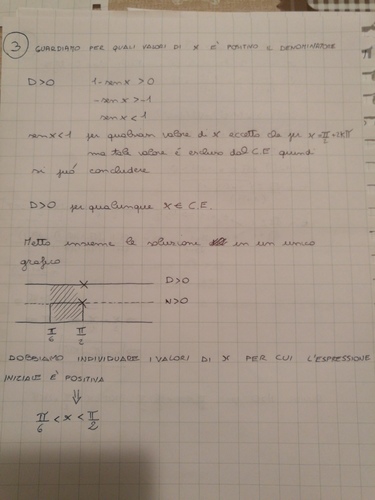 3 GUARDIAMO PER QUALI VALORI DI X E' POSITIVO IL DENOMINATORE
D>0 1-sen x >0
-sen x >-1
sen x < 1
sen x < 1 per qualsiasi valore di x eccetto che per x = π/2 + 2kπ
ma tale valore è escluso dal C.E. quindi
si può concludere
D>0 per qualunque x ∈ C.E.
Metto insieme le soluzione in un unico
grafico
D>0
N>0
π/6 π/2
DOBBIAMO INDIVIDUARE I VALORI DI X PER CUI L'ESPRESSIONE
INIZIALE E' POSITIVA
⇓
π/6 < x < π/2